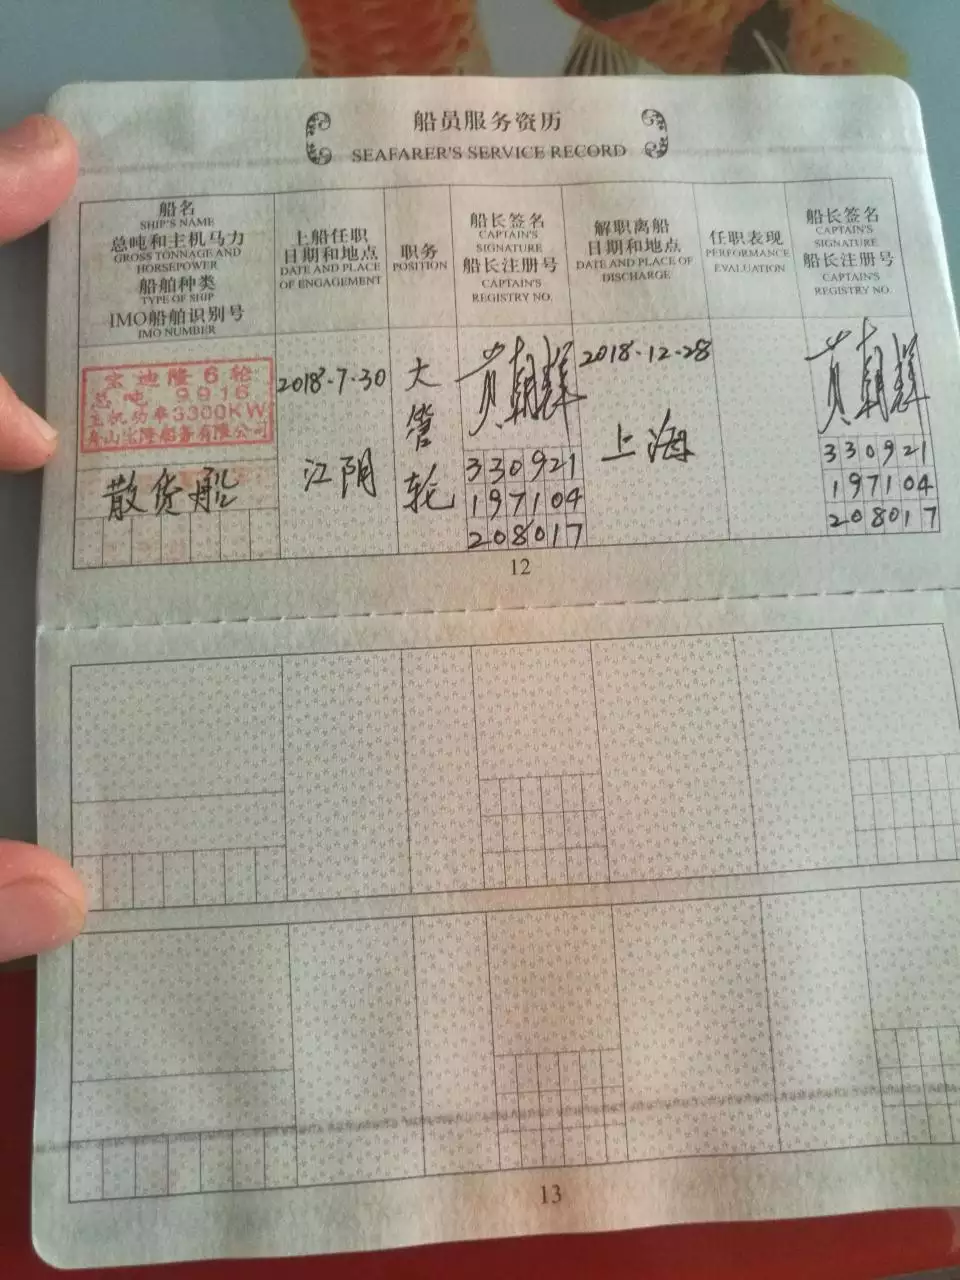 船员服务资历
SEAFARER'S SERVICE RECORD
船名
SHIP'S NAME
总吨和主机马力
GROSS TONNAGE AND
HORSEPOWER
船舶种类
TYPE OF SHIP
IMO船舶识别号
IMO NUMBER
上船任职
日期和地点
DATE AND PLACE
OF ENGAGEMENT
职务
POSITION
船长签名
CAPTAIN'S
SIGNATURE
船长注册号
CAPTAIN'S
REGISTRY NO.
解职离船
日期和地点
DATE AND PLACE OF
DISCHARGE
任职表现
PERFORMANCE
EVALUATION
船长签名
CAPTAIN'S
SIGNATURE
船长注册号
CAPTAIN'S
REGISTRY NO.
宝迪隆6轮
总吨 9916
主机功率3300KW
舟山宝隆船务有限公司
散货船
2018.7.30
江阴
大
管
轮
330921
197104
208017
2018.12.28
上海
330921
197104
208017
12
13